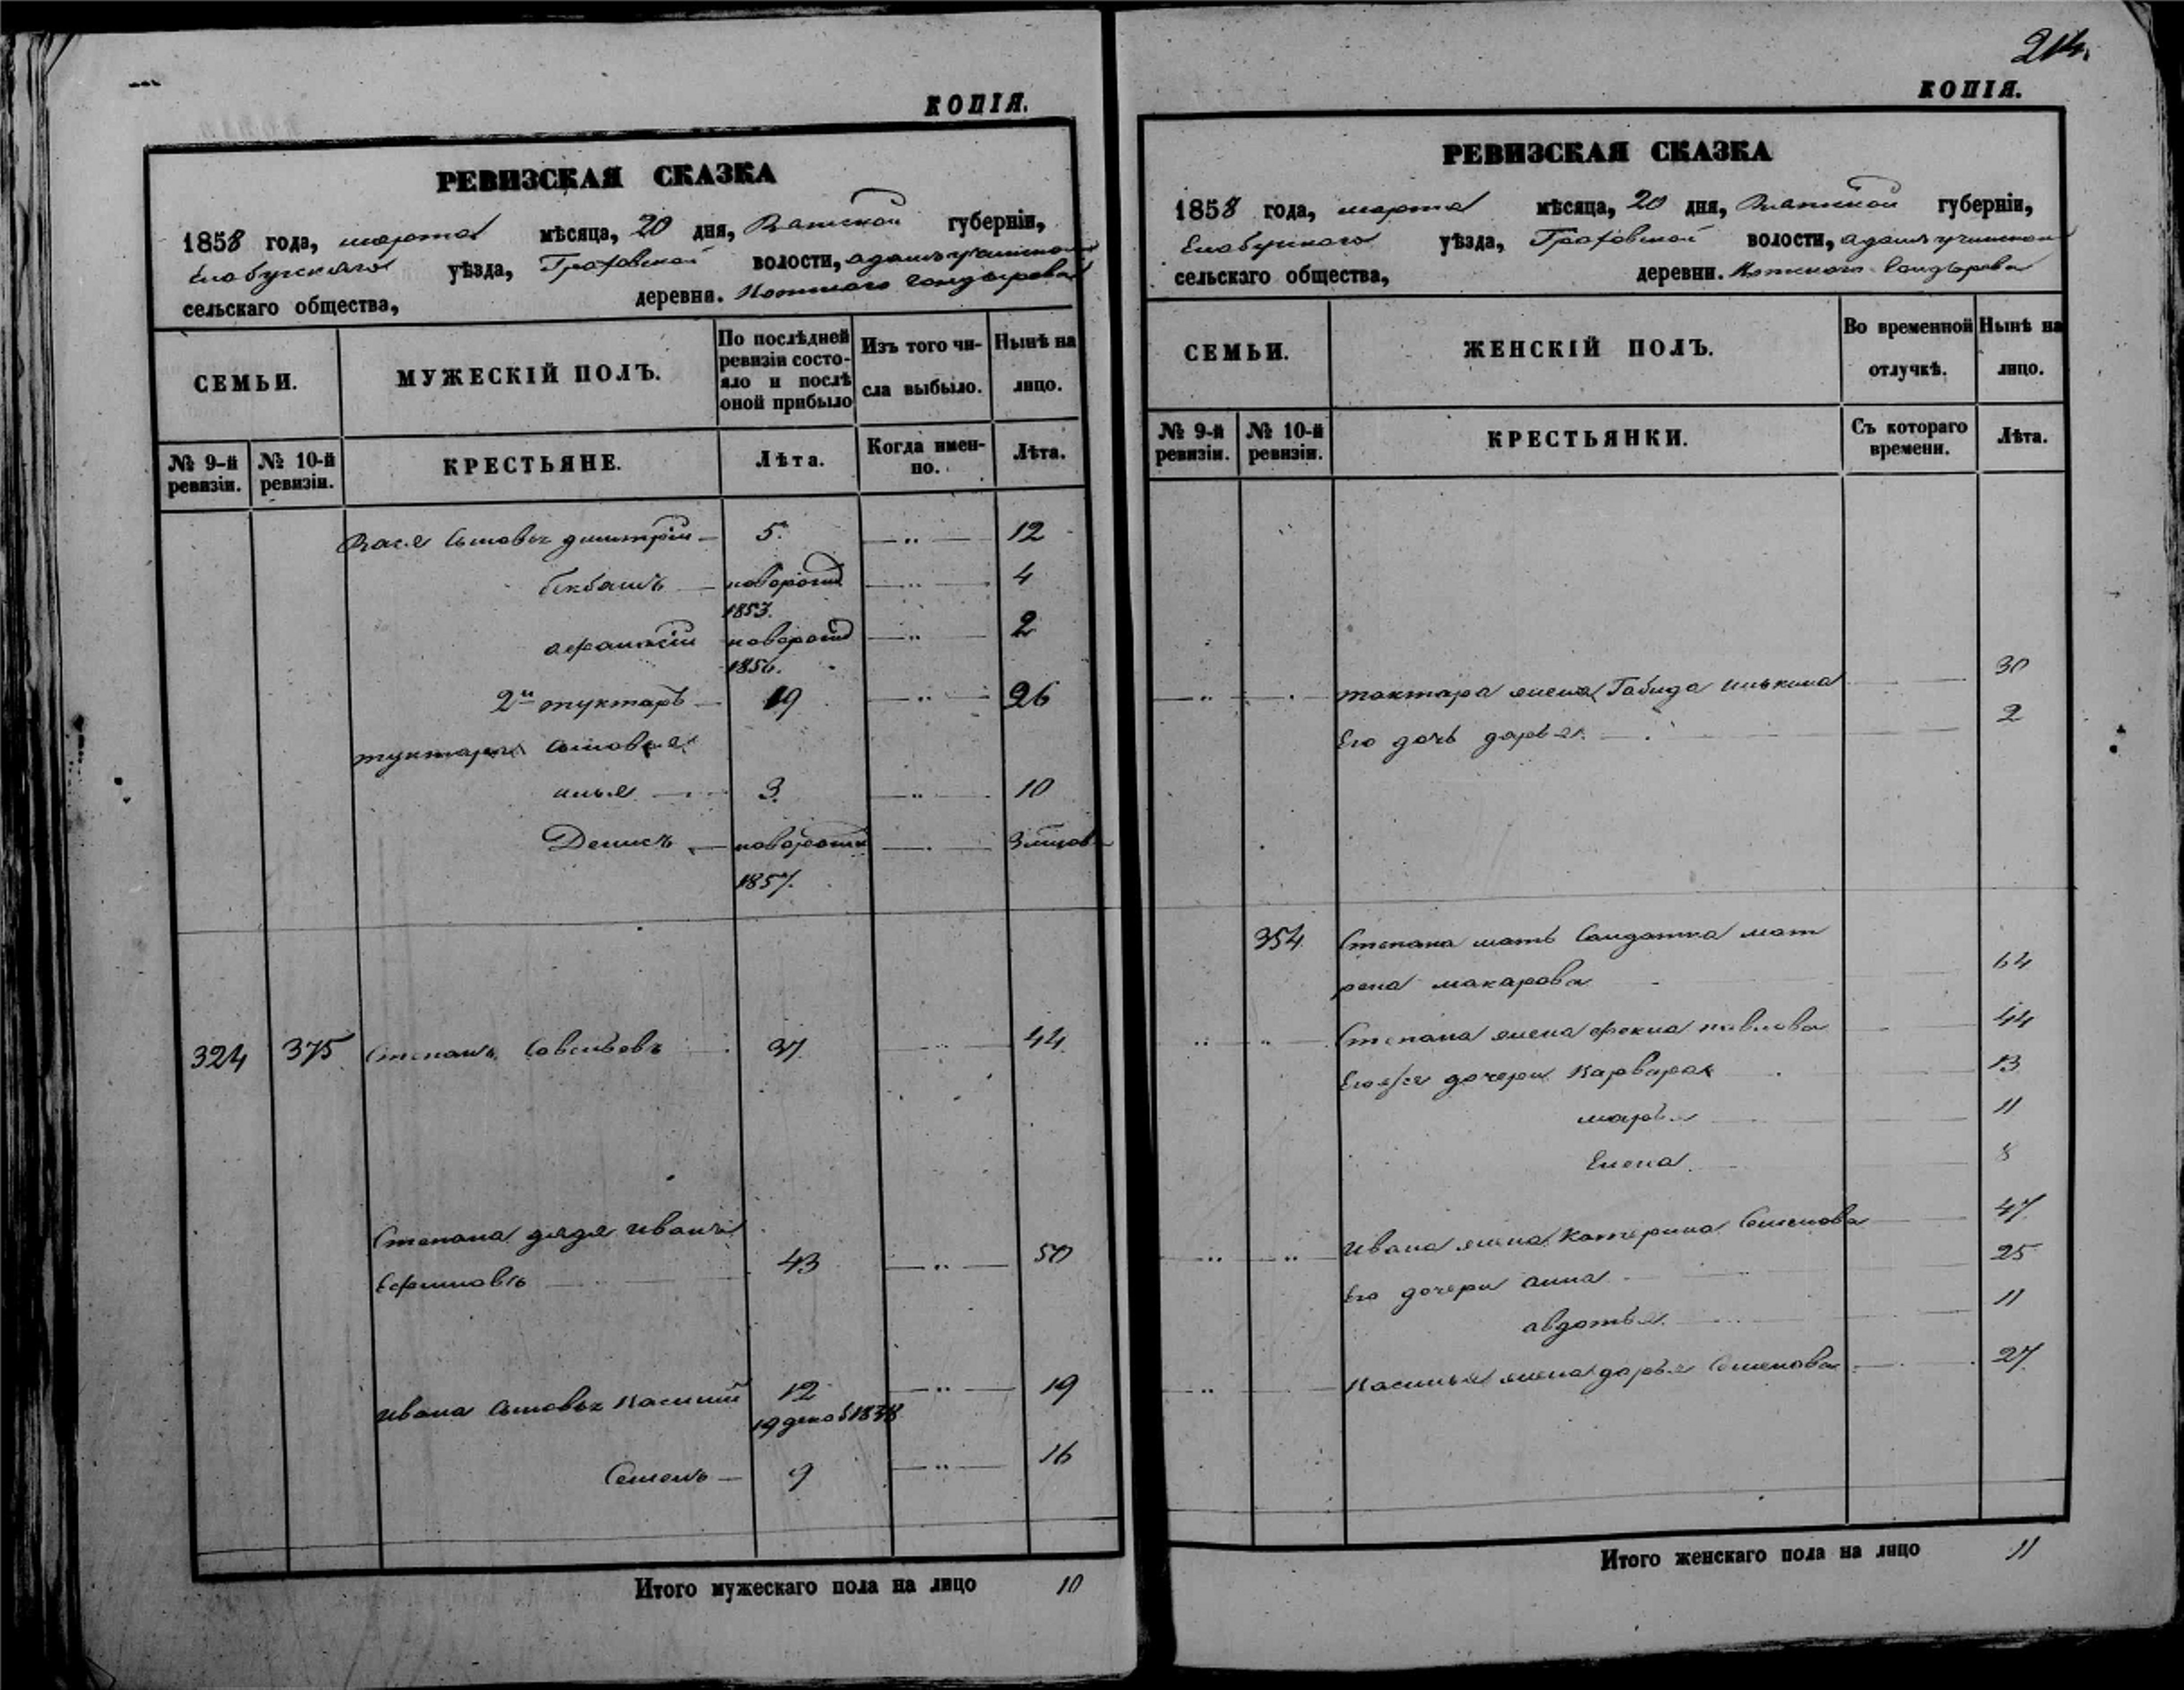 КОПІЯ.
РЕВИЗСКАЯ СКАЗКА
1858 года, марта мѣсяца, 20 дня, Вятской губерніи,
Елабугскаго уѣзда, Граховской волости,
сельскаго общества, деревни.
СЕМЬИ. МУЖЕСКІЙ ПОЛЪ. По послѣдней ревизіи состояло и послѣ оной прибыло Изъ того числа выбыло. Нынѣ на лицо.
№ 9-й ревизіи. № 10-й ревизіи. КРЕСТЬЯНЕ. Лѣта. Когда именно. Лѣта.
сыновья Дмитрій 5. 12
Бекбашъ новорожд 4
1853.
Афанасій новорожд 2
1856.
2й Туктаръ 19 26
Туктара сыновья
Илья 3. 10
Денисъ новорожд 3 мѣсяв
1857.
324 375 Степанъ Савельевъ 37. 44.
Степана дядя Иванъ
Ефимовъ 43 50
Ивана сыновья Василій 12 19
19 декаб 1838
Семенъ 9 16
Итого мужескаго пола на лицо 10
214.
КОПІЯ.
РЕВИЗСКАЯ СКАЗКА
1858 года, марта мѣсяца, 20 дня, Вятской губерніи,
Елабугскаго уѣзда, Граховской волости,
сельскаго общества, деревни.
СЕМЬИ. ЖЕНСКІЙ ПОЛЪ. Во временной отлучкѣ. Нынѣ на лицо.
№ 9-й ревизіи. № 10-й ревизіи. КРЕСТЬЯНКИ. Съ котораго времени. Лѣта.
Тактара жена Габида Илькина 30
Его дочь Дарья. 2
354. Степана мать Солдатка Мат
рена Макарова 64
Степана жена Фекла Павлова 44
Его же дочери Варвара 13
Марья 11
Елена. 8
Ивана жена Катерина Семенова 47.
Его дочери Анна 25
Авдотья. 11
Василья жена Дарья Семенова 27.
Итого женскаго пола на лицо 11